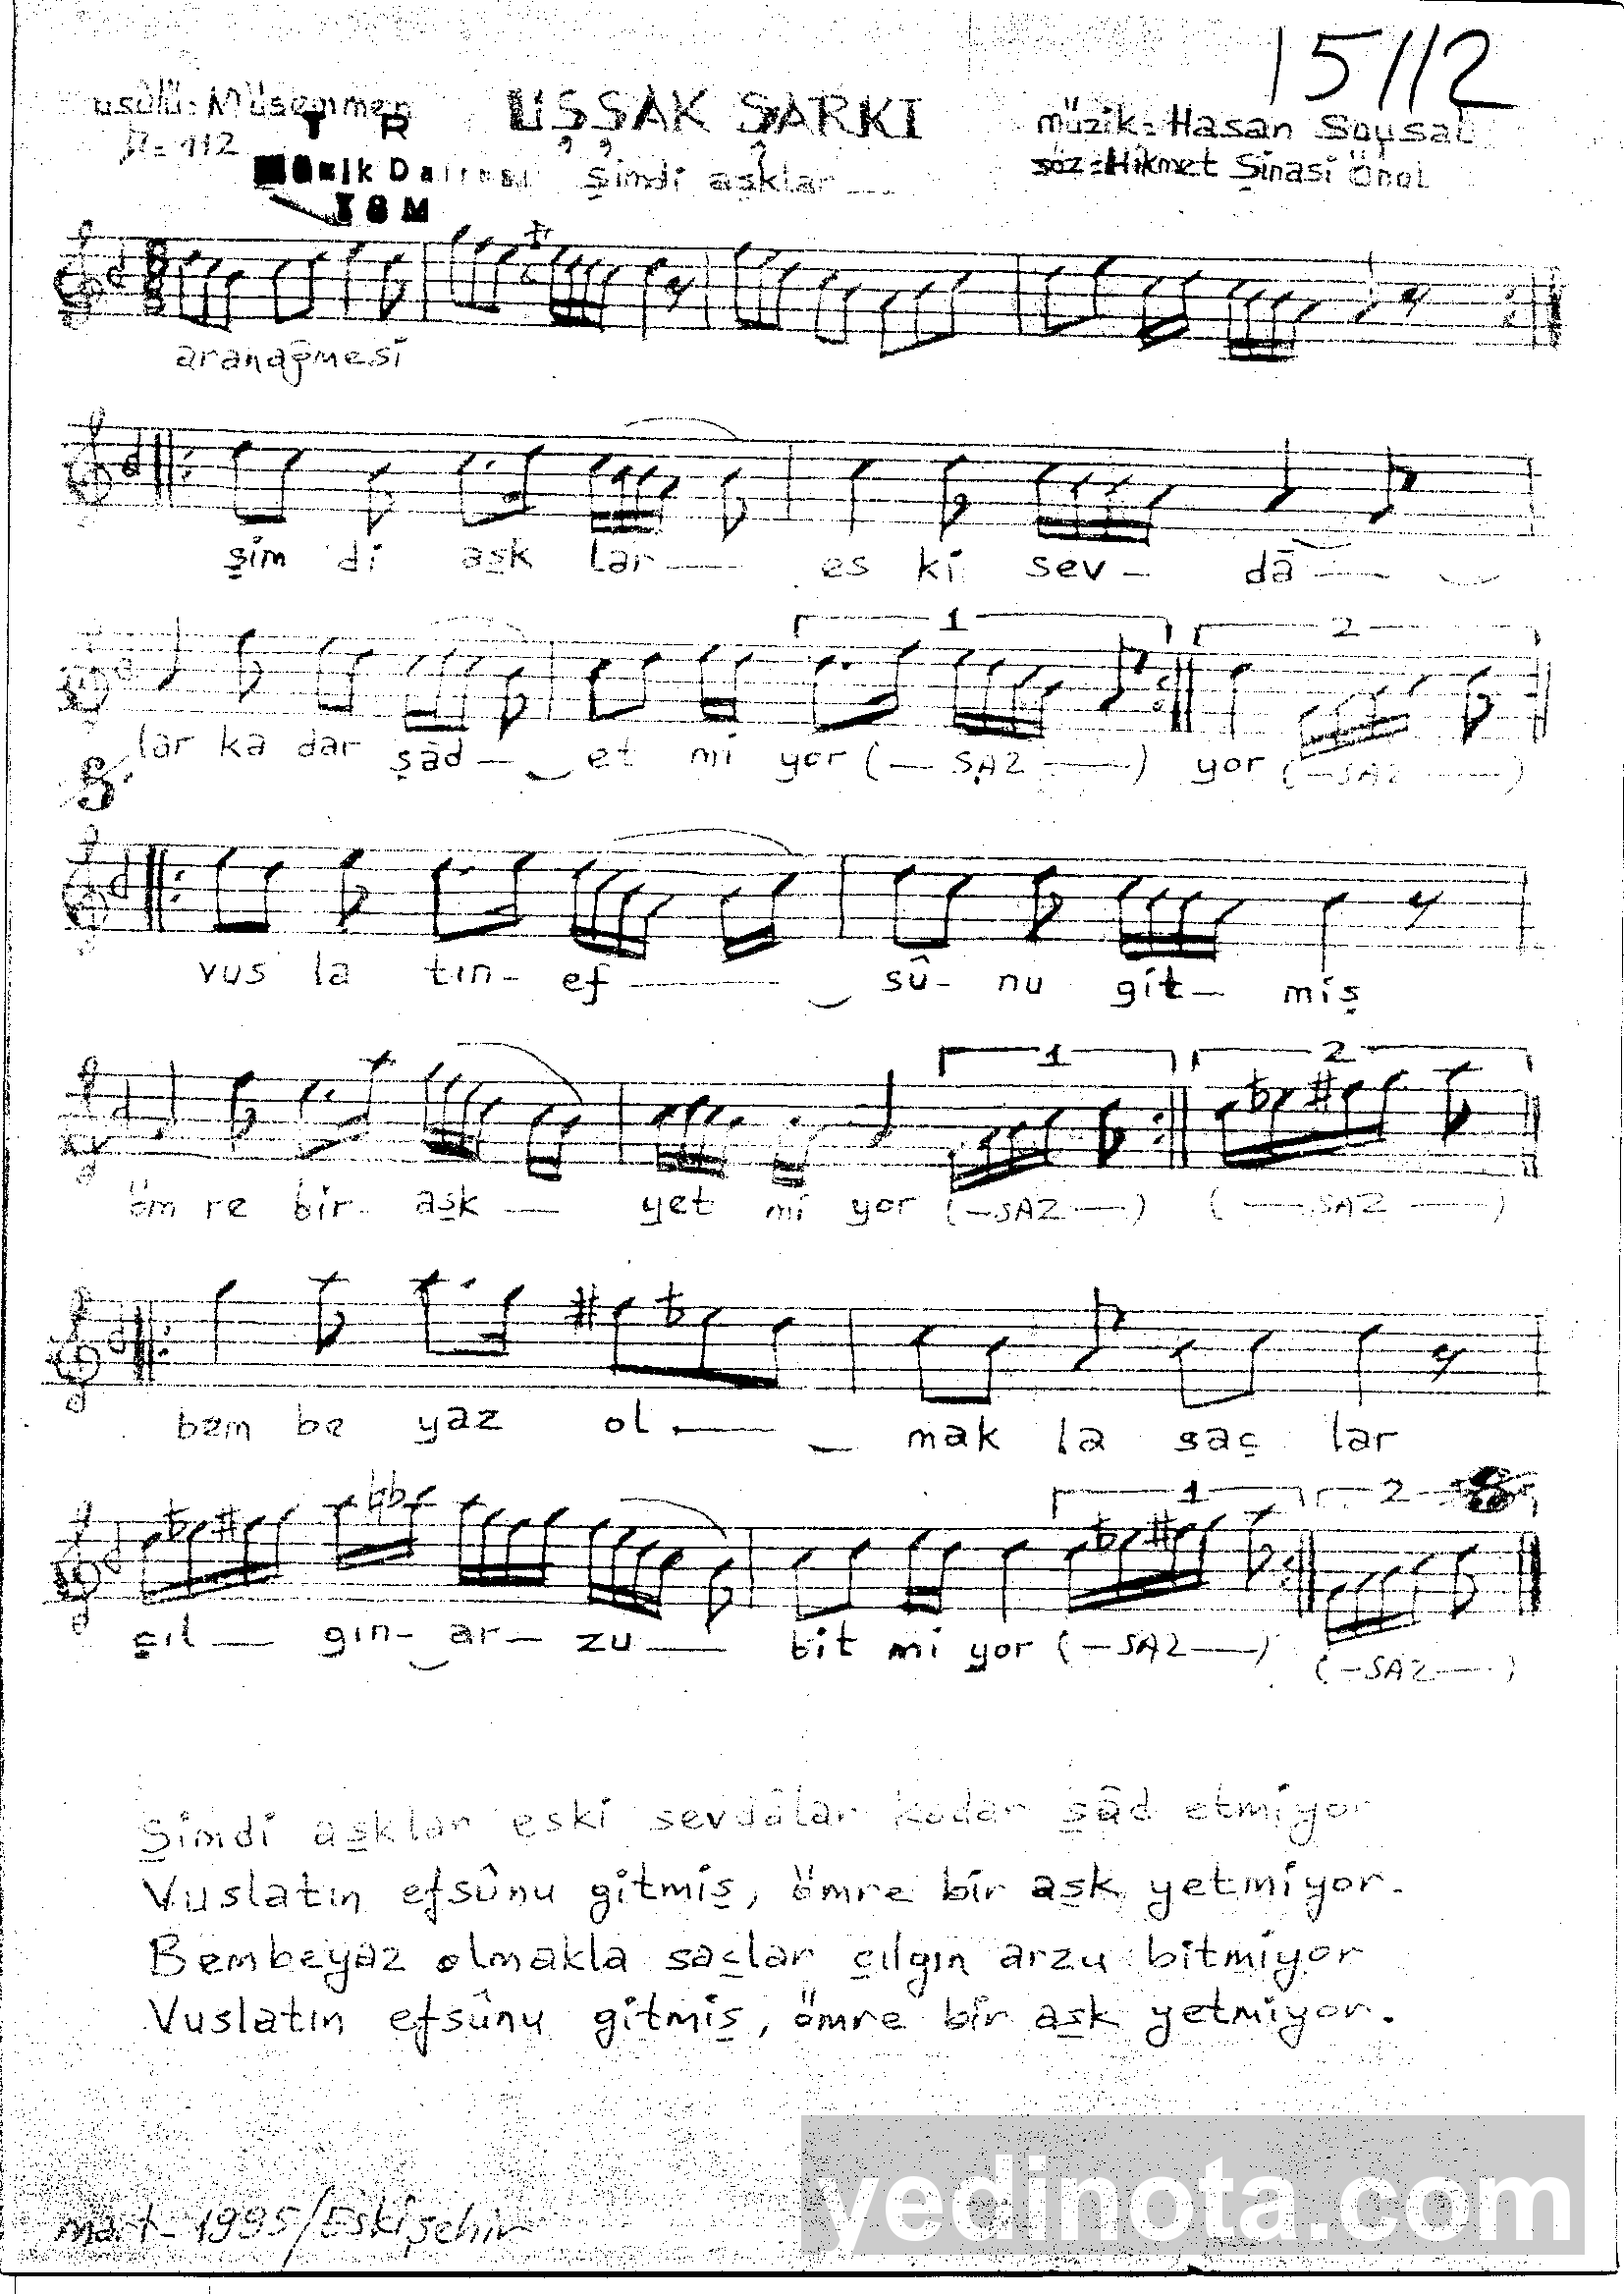 15112
usûlü: Müsemmen
UŞŞAK ŞARKI
müzik: Hasan Soysal
♪ = 112
T R
Müzik Dairesi
"Şimdi aşklar"
söz: Hikmet Şinasi Önol
TSM
aranağmesi
şim di aşk lar — es ki sev - dâ —
1 2
lar ka dar şâd — et mi yor (— SAZ —) yor (— SAZ —)
vus la tın - ef — sû - nu git — miş
1 2
öm re bir - aşk — yet mi yor (— SAZ —) (— SAZ —)
bem be yaz ol — mak la saç lar
1 2
çıl — gın - ar — zu — bit mi yor (— SAZ —) (— SAZ —)
Şimdi aşklar eski sevdâlar kadar şâd etmiyor
Vuslatın efsûnu gitmiş, ömre bir aşk yetmiyor.
Bembeyaz olmakla saçlar çılgın arzu bitmiyor
Vuslatın efsûnu gitmiş, ömre bir aşk yetmiyor.
mart - 1995 / Eskişehir
yedinota.com